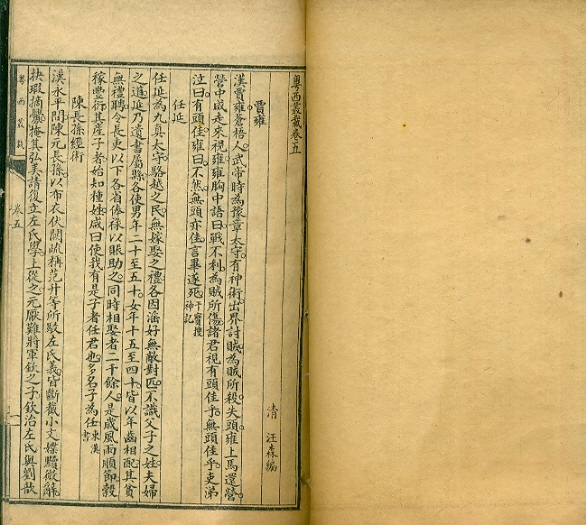 粤西叢載卷五
清 汪森編
賈雍
漢賈雍蒼梧人武帝時為豫章太守有神術出界討賊為賊所殺失頭雍上馬還營
營中咸走來視雍雍胸中語曰戰不利為賊所傷諸君視有頭佳乎無頭佳乎吏涕
泣曰有頭佳雍曰不然無頭亦佳言畢遂死干寶搜神記
任延
任延為九真太守駱越之民無嫁娶之禮各因淫好無敵對匹不識父子之姓夫婦
之道延乃遺書屬縣各使男年二十至五十女年十五至四十皆以年齒相配其貧
無禮聘令長吏以下各省俸祿以賑助之同時相娶者二千餘人是歲風雨順節穀
稼豐衍其產子者始知種姓咸曰使我有是子者任君也多名子為任東漢書
陳長孫經術
漢永平間陳元長孫以布衣伏闕疏稱范升等所駁左氏義皆斷截小文媟黷微辭
抉瑕摘釁掩其弘美請復立左氏學上從之元厭難將軍欽之子欽治左氏與劉歆
粤西叢載
卷五
一